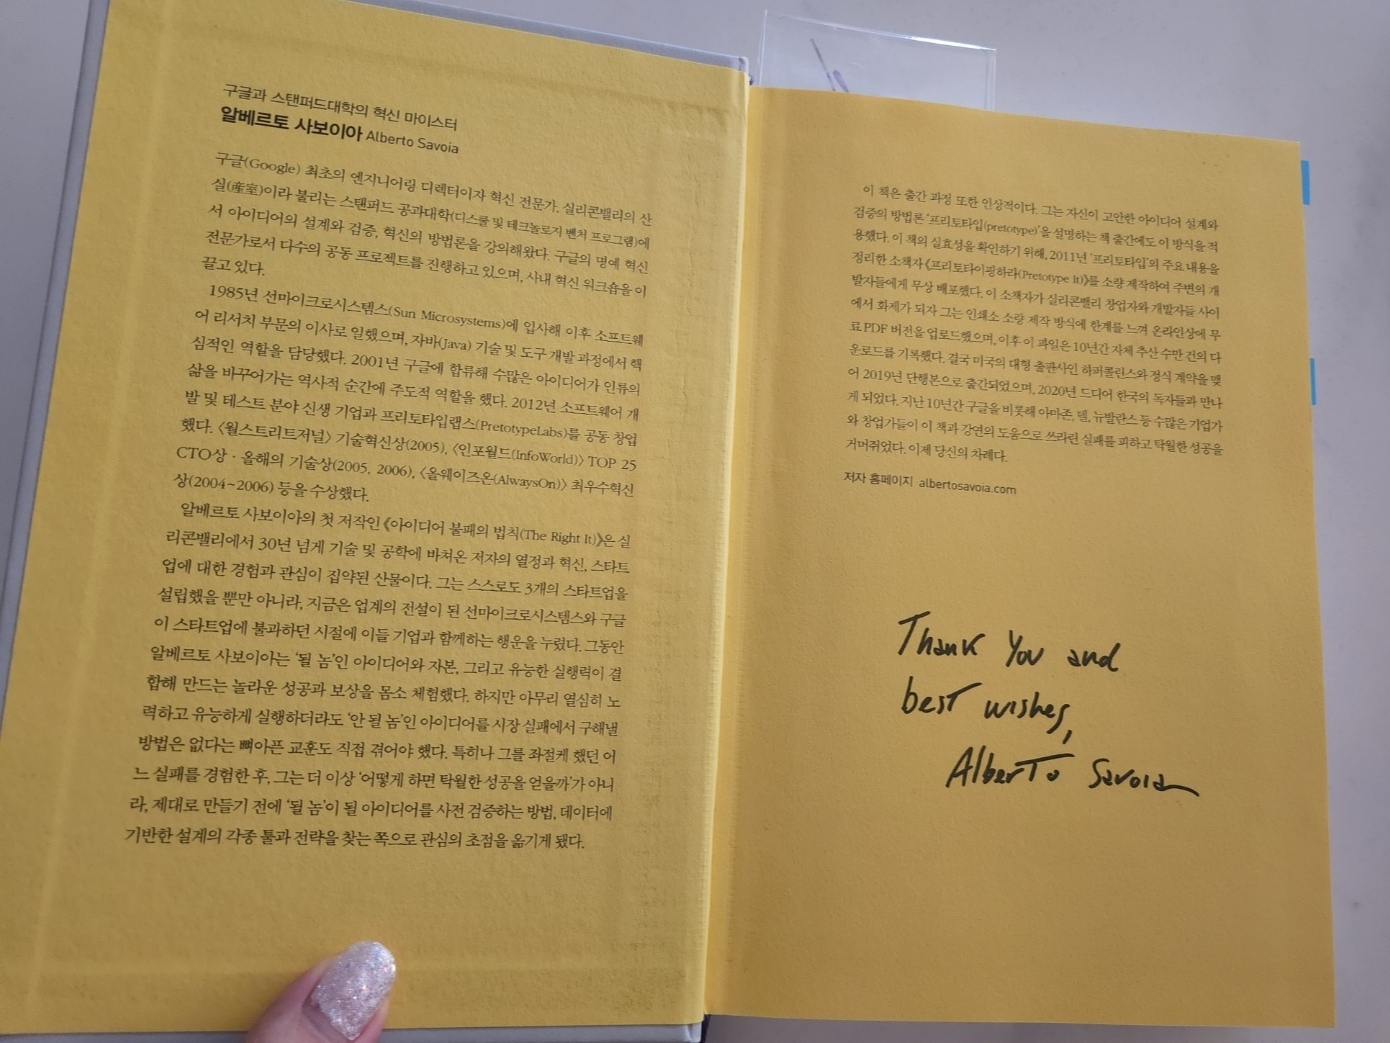 구글과 스탠퍼드대학의 혁신 마이스터
알베르토 사보이아 Alberto Savoia
구글(Google) 최초의 엔지니어링 디렉터이자 혁신 전문가. 실리콘밸리의 산
실(産室)이라 불리는 스탠퍼드 공과대학(디스쿨 및 테크놀로지 벤처 프로그램)에
서 아이디어의 설계와 검증, 혁신의 방법론을 강의해왔다. 구글의 명예 혁신
전문가로서 다수의 공동 프로젝트를 진행하고 있으며, 사내 혁신 워크숍을 이
끌고 있다.
1985년 선마이크로시스템스(Sun Microsystems)에 입사해 이후 소프트웨
어 리서치 부문의 이사로 일했으며, 자바(Java) 기술 및 도구 개발 과정에서 핵
심적인 역할을 담당했다. 2001년 구글에 합류해 수많은 아이디어가 인류의
삶을 바꾸어가는 역사적 순간에 주도적 역할을 했다. 2012년 소프트웨어 개
발 및 테스트 분야 신생 기업과 프리토타입랩스(PretotypeLabs)를 공동 창업
했다. 〈월스트리트저널〉 기술혁신상(2005), 〈인포월드(InfoWorld)〉 TOP 25
CTO상·올해의 기술상(2005, 2006), 〈올웨이즈온(AlwaysOn)〉 최우수혁신
상(2004~2006) 등을 수상했다.
알베르토 사보이아의 첫 저작인 《아이디어 불패의 법칙(The Right It)》은 실
리콘밸리에서 30년 넘게 기술 및 공학에 바쳐온 저자의 열정과 혁신, 스타트
업에 대한 경험과 관심이 집약된 산물이다. 그는 스스로도 3개의 스타트업을
설립했을 뿐만 아니라, 지금은 업계의 전설이 된 선마이크로시스템스와 구글
이 스타트업에 불과하던 시절에 이들 기업과 함께하는 행운을 누렸다. 그동안
알베르토 사보이아는 '될 놈'인 아이디어와 자본, 그리고 유능한 실행력이 결
합해 만드는 놀라운 성공과 보상을 몸소 체험했다. 하지만 아무리 열심히 노
력하고 유능하게 실행하더라도 '안 될 놈'인 아이디어를 시장 실패에서 구해낼
방법은 없다는 뼈아픈 교훈도 직접 겪어야 했다. 특히나 그를 좌절케 했던 어
느 실패를 경험한 후, 그는 더 이상 '어떻게 하면 탁월한 성공을 얻을까'가 아니
라, 제대로 만들기 전에 '될 놈'이 될 아이디어를 사전 검증하는 방법, 데이터에
기반한 설계의 각종 툴과 전략을 찾는 쪽으로 관심의 초점을 옮기게 됐다.
이 책은 출간 과정 또한 인상적이다. 그는 자신이 고안한 아이디어 설계와
검증의 방법론 '프리토타입(pretotype)'을 설명하는 책 출간에도 이 방식을 적
용했다. 이 책의 실효성을 확인하기 위해, 2011년 '프리토타입'의 주요 내용을
정리한 소책자 《프리토타이핑하라(Pretotype It)》를 소량 제작하여 주변의 개
발자들에게 무상 배포했다. 이 소책자가 실리콘밸리 창업자와 개발자들 사이
에서 화제가 되자 그는 인쇄소 소량 제작 방식에 한계를 느껴 온라인상에 무
료 PDF 버전을 업로드했으며, 이후 이 파일은 10년간 자체 추산 수만 건의 다
운로드를 기록했다. 결국 미국의 대형 출판사인 하퍼콜린스와 정식 계약을 맺
어 2019년 단행본으로 출간되었으며, 2020년 드디어 한국의 독자들과 만나
게 되었다. 지난 10년간 구글을 비롯해 아마존, 델, 뉴발란스 등 수많은 기업가
와 창업가들이 이 책과 강연의 도움으로 쓰라린 실패를 피하고 탁월한 성공을
거머쥐었다. 이제 당신의 차례다.
저자 홈페이지 albertosavoia.com
Thank You and
best wishes,
Alberto Savoia